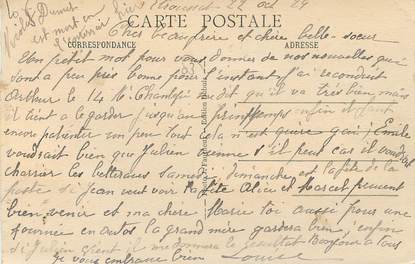 22 oct 29
CARTE POSTALE
CORRESPONDANCE
ADRESSE
Cher beau frère et chère belle-soeur
Un petit mot pour vous donner de nos nouvelles qui
sont a peu près bonne pour l'instant j'ai reconduit
Arthur le 14 Mr dit qu'il va très bien mais
il tient a le garder jusqu'au printemps enfin il faut
encore patienter un peu tout cela n'est guère gai, Emile
voudrait bien que Julien vienne s'il peut car il voudrait
charrier les betteraves samedi, dimanche est la fête de la
poste si Jean veut voir la fête Alice et Marcel peuvent
bien venir et ma chère Marie toi aussi pour une
journée en autos la grand mère gardera bien, enfin
si Julien vient il me donnera le résultat Bonjour a tous
je vous embrasse bien Louise